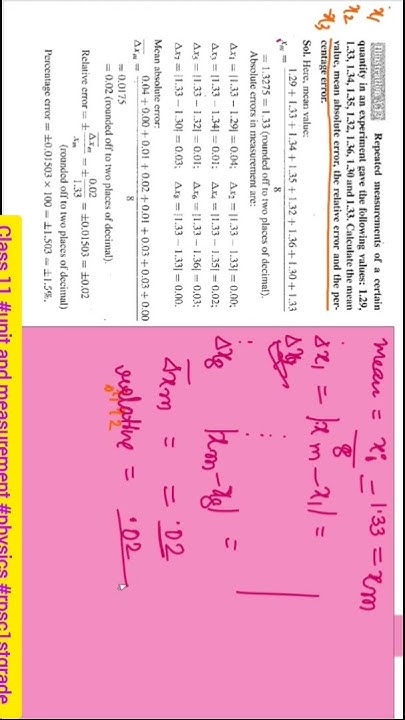 x₁
x₂
x₃
Repeated measurements of a certain
quantity in an experiment gave the following values: 1.29,
1.33, 1.34, 1.35, 1.32, 1.36, 1.30 and 1.33. Calculate the mean
value, mean absolute error, the relative error and the per-
centage error.
Sol. Here, mean value:
xₘ = (1.29 + 1.33 + 1.34 + 1.35 + 1.32 + 1.36 + 1.30 + 1.33)/8
= 1.3275 = 1.33 (rounded off to two places of decimal).
Absolute errors in measurement are:
Δx₁ = |1.33 − 1.29| = 0.04; Δx₂ = |1.33 − 1.33| = 0.00;
Δx₃ = |1.33 − 1.34| = 0.01; Δx₄ = |1.33 − 1.35| = 0.02;
Δx₅ = |1.33 − 1.32| = 0.01; Δx₆ = |1.33 − 1.36| = 0.03;
Δx₇ = |1.33 − 1.30| = 0.03; Δx₈ = |1.33 − 1.33| = 0.00.
Mean absolute error:
Δxₘ = (0.04 + 0.00 + 0.01 + 0.02 + 0.01 + 0.03 + 0.03 + 0.00)/8
= 0.0175
= 0.02 (rounded off to two places of decimal).
Relative error = ± Δxₘ/xₘ = ± 0.02/1.33 = ±0.01503 = ±0.02
(rounded off to two places of decimal)
Percentage error = ±0.01503 × 100 = ±1.503 = ±1.5%.
mean = xᵢ/8 = 1.33 = xm
Δx₁ = |xm − x₁| =
Δx₈ |xm − x₈| =
Δxm = = .02
relative = .02
Class 11 #unit and measurement #physics #rpsc1stgrade